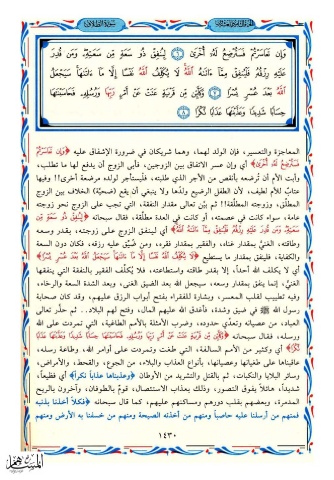 وَإِن تَعَاسَرْتُمْ فَسَتُرْضِعُ لَهُۥٓ أُخْرَىٰ ٦ لِيُنفِقْ ذُو سَعَةٍ مِّن سَعَتِهِۦ وَمَن قُدِرَ
عَلَيْهِ رِزْقُهُۥ فَلْيُنفِقْ مِمَّآ ءَاتَىٰهُ ٱللَّهُ لَا يُكَلِّفُ ٱللَّهُ نَفْسًا إِلَّا مَآ ءَاتَىٰهَا سَيَجْعَلُ
ٱللَّهُ بَعْدَ عُسْرٍ يُسْرًا ٧ وَكَأَيِّن مِّن قَرْيَةٍ عَتَتْ عَنْ أَمْرِ رَبِّهَا وَرُسُلِهِۦ فَحَاسَبْنَٰهَا
حِسَابًا شَدِيدًا وَعَذَّبْنَٰهَا عَذَابًا نُّكْرًا ٨
المعاجزة والتعسير، فإن الولد لهما، وهما شريكان في ضرورة الإشفاق عليه ﴿وَإِن تَعَاسَرْتُمْ
فَسَتُرْضِعُ لَهُۥٓ أُخْرَىٰ﴾ أي وإن عسر الاتفاق بين الزوجين، فأبى الزوج أن يدفع لها ما تطلب،
وأبت الأم أن تُرضعه بأنقص من الأجر الذي طلبته، فليستأجر لولده مرضعة أخرى!! وفيها
عتابٌ للأم لطيف، لأن الطفل الرضيع ولدُها ولا ينبغي أن يقع (ضحيَّة) الخلاف بين الزوج
المطلِّق، وزوجته المطلَّقة!! ثم بيَّن تعالى مقدار النفقة، التي تجب على الزوج نحو زوجته
عامة، سواء كانت في عصمته، أو كانت في العدة مطلَّقة، فقال سبحانه ﴿لِيُنفِقْ ذُو سَعَةٍ مِّن
سَعَتِهِۦ وَمَن قُدِرَ عَلَيْهِ رِزْقُهُۥ فَلْيُنفِقْ مِمَّآ ءَاتَىٰهُ ٱللَّهُ﴾ أي لينفق الزوج على زوجته، بقدر وسعه
وطاقته، الغنيُّ بمقدار غناه، والفقير بمقدار فقره، ومن ضُيِّق عليه رزقه، فكان دون السعة
والكفاية، فلينفق بمقدار ما يستطيع ﴿لَا يُكَلِّفُ ٱللَّهُ نَفْسًا إِلَّا مَآ ءَاتَىٰهَا سَيَجْعَلُ ٱللَّهُ بَعْدَ عُسْرٍ يُسْرًا﴾
أي لا يكلف الله أحداً، إلا بقدر طاقته واستطاعته، فلا يُكلَّف الفقير بالنفقة التي ينفقها
الغنيُّ، إنما ينفق بمقدار وسعه، سيجعل الله بعد الضيق الغنى، وبعد الشدة السعة والرخاء،
وفيه تطييب لقلب المعسر، وبشارة للفقراء بفتح أبواب الرزق عليهم، وقد كان صحابة
رسول الله ﷺ في ضيق وشدة، فأغدق الله عليهم المال، وفتح لهم البلاد.. ثم حذَّر تعالى
العباد، من عصيانه وتعدِّي حدوده، وضرب الأمثلة بالأمم الطاغية، التي تمردت على الله
ورسله، فقال سبحانه ﴿وَكَأَيِّن مِّن قَرْيَةٍ عَتَتْ عَنْ أَمْرِ رَبِّهَا وَرُسُلِهِۦ فَحَاسَبْنَٰهَا حِسَابًا شَدِيدًا وَعَذَّبْنَٰهَا عَذَابًا
نُّكْرًا﴾ أي وكثير من الأمم السالفة، التي طغت وتمردت على أوامر الله، وطاعة رسله،
عاقبناها على طغيانها وعصيانها، بأنواع العذاب والبلاء، من الجوع، والقحط، والأمراض،
وسائر البلايا والنكبات، ثم بالقتل والتشريد من الأوطان ﴿وعذبناها عذاباً نكراً﴾ أي فظيعاً،
شديداً، هائلاً يفوق التصور، وذلك بعذاب الاستئصال، قومٌ بالطوفان، وآخرون بالريح
المدمرة، وبعضهم بقلب دورهم ومساكنهم عليهم، كما قال سبحانه ﴿فكلاً أخذنا بذنبه
فمنهم من أرسلنا عليه حاصباً ومنهم من أخذته الصيحة ومنهم من خسفنا به الأرض ومنهم
١٤٣٠